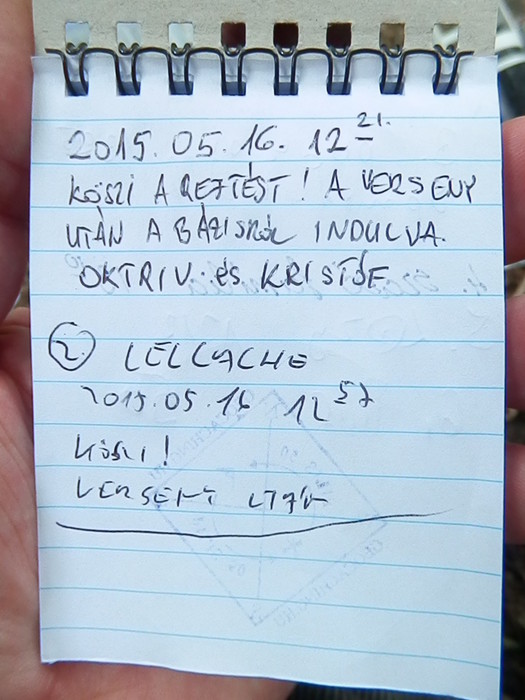 2015.05.16. 12 21.
KÖSZI A REJTÉST! A VERSENY
UTÁN A BÁZISRÓL INDULVA.
OKTRIV. és KRISTÓF
2. LELCACHE
2015.05.16 12 57
KÖSZI!
VERSENY UTÁN